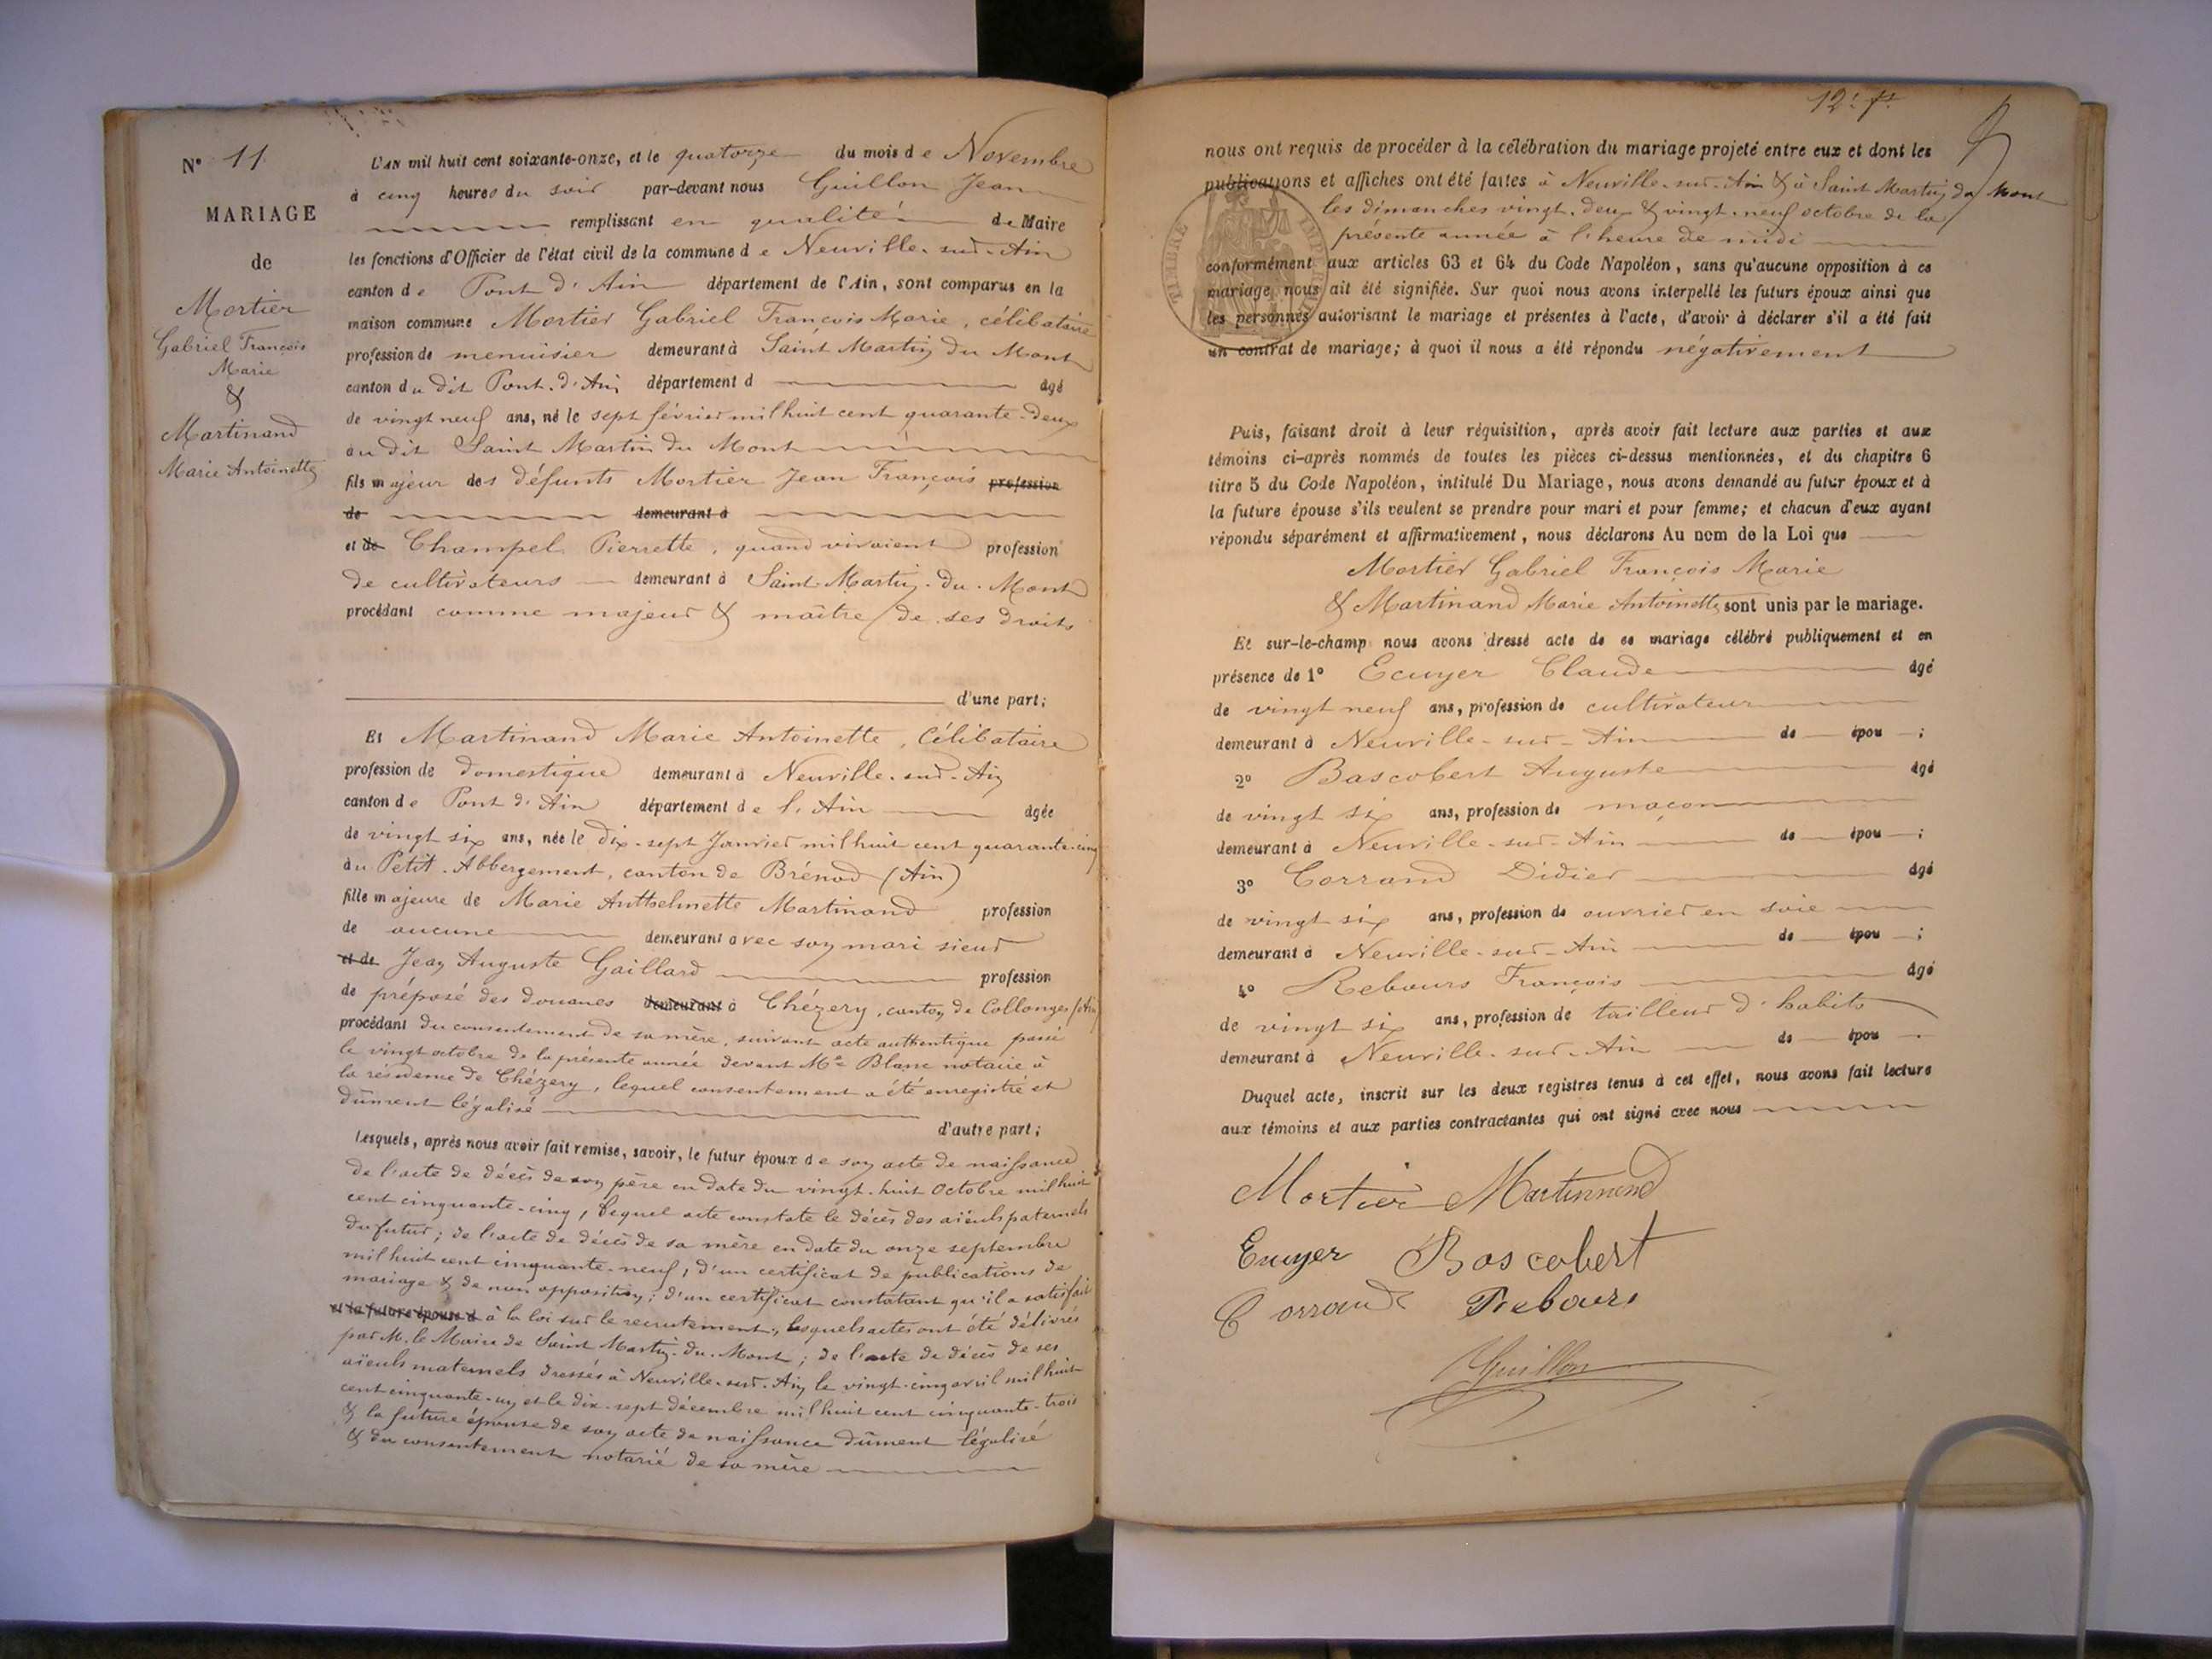 N° 11
MARIAGE
de
Mortier
Gabriel François
Marie
&
Martinand
Marie Antoinette
L'AN mil huit cent soixante-onze, et le quatorze du mois de Novembre
à cinq heures du soir par-devant nous Guillon Jean
remplissant en qualité de Maire
les fonctions d'Officier de l'état civil de la commune de Neuville-sur-Ain
canton de Pont d'Ain département de l'Ain, sont comparus en la
maison commune Mortier Gabriel François Marie, célibataire
profession de menuisier demeurant à Saint Martin du Mont
canton du dit Pont-d'Ain département d âgé
de vingt neuf ans, né le sept février mil huit cent quarante-deux
au dit Saint Martin du Mont
fils majeur des défunts Mortier Jean François profession
de demeurant à
et de Champel Pierrette, quand vivaient profession
de cultivateurs demeurant à Saint-Martin-du-Mont
procédant comme majeur & maître de ses droits
d'une part;
Et Martinand Marie Antoinette, Célibataire
profession de domestique demeurant à Neuville-sur-Ain
canton de Pont d'Ain département de l'Ain âgée
de vingt six ans, née le dix-sept Janvier mil huit cent quarante-cinq
au Petit-Abbergement, canton de Brénod (Ain)
fille majeure de Marie Anthelmette Martinand profession
de aucune demeurant avec son mari sieur
et de Jean Auguste Gaillard profession
de préposé des douanes demeurant à Chézery, canton de Collonges (Ain)
procédant du consentement de sa mère, suivant acte authentique passé
le vingt octobre de la présente année devant Me Blanc notaire à
la résidence de Chézery, lequel consentement a été enregistré et
dûment légalisé
d'autre part;
Lesquels, après nous avoir fait remise, savoir, le futur époux de son acte de naissance
de l'acte de décès de son père en date du vingt-huit Octobre mil huit
cent cinquante-cinq, lequel acte constate le décès des aïeuls paternels
du futur; de l'acte de décès de sa mère en date du onze septembre
mil huit cent cinquante-neuf, d'un certificat de publications de
mariage & de non opposition; d'un certificat constatant qu'il a satisfait
et la future épouse d à la loi sur le recrutement, lesquels actes ont été délivrés
par M. le Maire de Saint Martin-du-Mont; de l'acte de décès de ses
aïeuls maternels dressés à Neuville-sur-Ain le vingt-cinq avril mil huit
cent cinquante-un et le dix-sept décembre mil huit cent cinquante-trois
& la future épouse de son acte de naissance dûment légalisé
& du consentement notarié de sa mère
12e ft
nous ont requis de procéder à la célébration du mariage projeté entre eux et dont les
publications et affiches ont été faites à Neuville-sur-Ain & à Saint Martin du Mont
les dimanches vingt-deux & vingt-neuf octobre de la
présente année à l'heure de midi
TIMBRE IMPERIAL
conformément aux articles 63 et 64 du Code Napoléon, sans qu'aucune opposition à ce
mariage nous ait été signifiée. Sur quoi nous avons interpellé les futurs époux ainsi que
les personnes autorisant le mariage et présentes à l'acte, d'avoir à déclarer s'il a été fait
un contrat de mariage; à quoi il nous a été répondu négativement
Puis, faisant droit à leur réquisition, après avoir fait lecture aux parties et aux
témoins ci-après nommés de toutes les pièces ci-dessus mentionnées, et du chapitre 6
titre 5 du Code Napoléon, intitulé Du Mariage, nous avons demandé au futur époux et à
la future épouse s'ils veulent se prendre pour mari et pour femme; et chacun d'eux ayant
répondu séparément et affirmativement, nous déclarons Au nom de la Loi que
Mortier Gabriel François Marie
& Martinand Marie Antoinette sont unis par le mariage.
Et sur-le-champ nous avons dressé acte de ce mariage célébré publiquement et en
présence de 1° Ecuyer Claude âgé
de vingt neuf ans, profession de cultivateur
demeurant à Neuville-sur-Ain de épou ;
2° Bascobert Auguste âgé
de vingt six ans, profession de maçon
demeurant à Neuville-sur-Ain de épou ;
3° Corrand Didier âgé
de vingt six ans, profession de ouvrier en soie
demeurant à Neuville-sur-Ain de épou ;
4° Rebours François âgé
de vingt six ans, profession de tailleur d'habits
demeurant à Neuville-sur-Ain de épou .
Duquel acte, inscrit sur les deux registres tenus à cet effet, nous avons fait lecture
aux témoins et aux parties contractantes qui ont signé avec nous
Mortier Martinnend
Ecuyer Boscobert
Corrand Rebours
Guillon